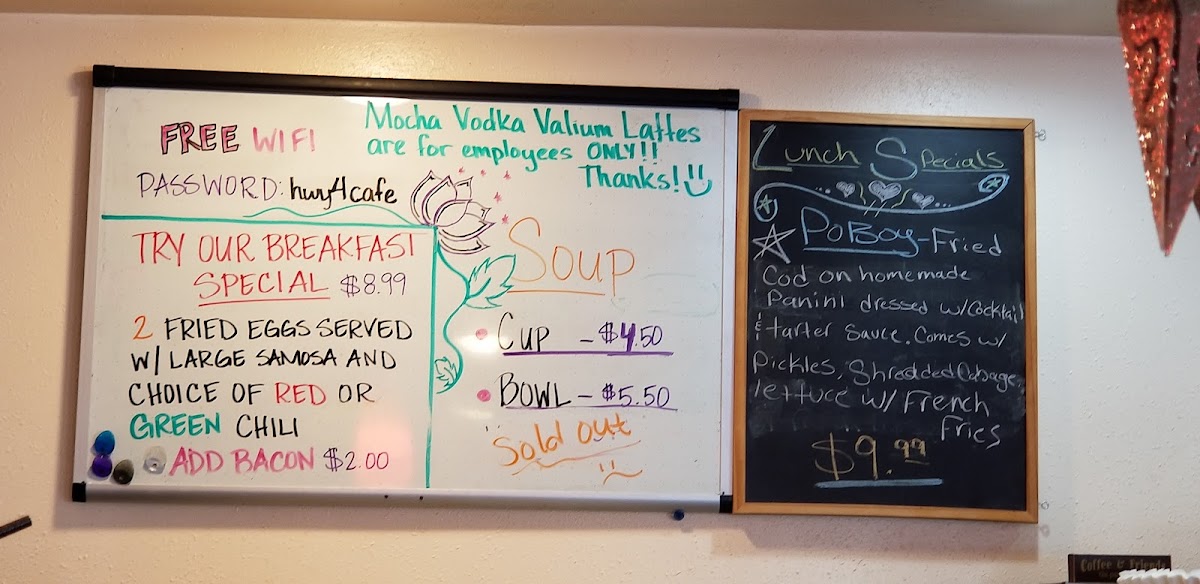 FREE WIFI
PASSWORD: hwy4cafe
Mocha Vodka Valium Lattes
are for employees ONLY!!
Thanks!
TRY OUR BREAKFAST
SPECIAL $8.99
2 FRIED EGGS SERVED
W/ LARGE SAMOSA AND
CHOICE OF RED OR
GREEN CHILI
ADD BACON $2.00
Soup
CUP - $4.50
BOWL - $5.50
Sold out
Lunch Specials
PoBoy-Fried
Cod on homemade
Panini dressed w/Cocktail
& tarter Sauce. Comes w/
Pickles, Shredded Cabage,
lettuce w/ French
Fries
$9.99
Coffee & Friends